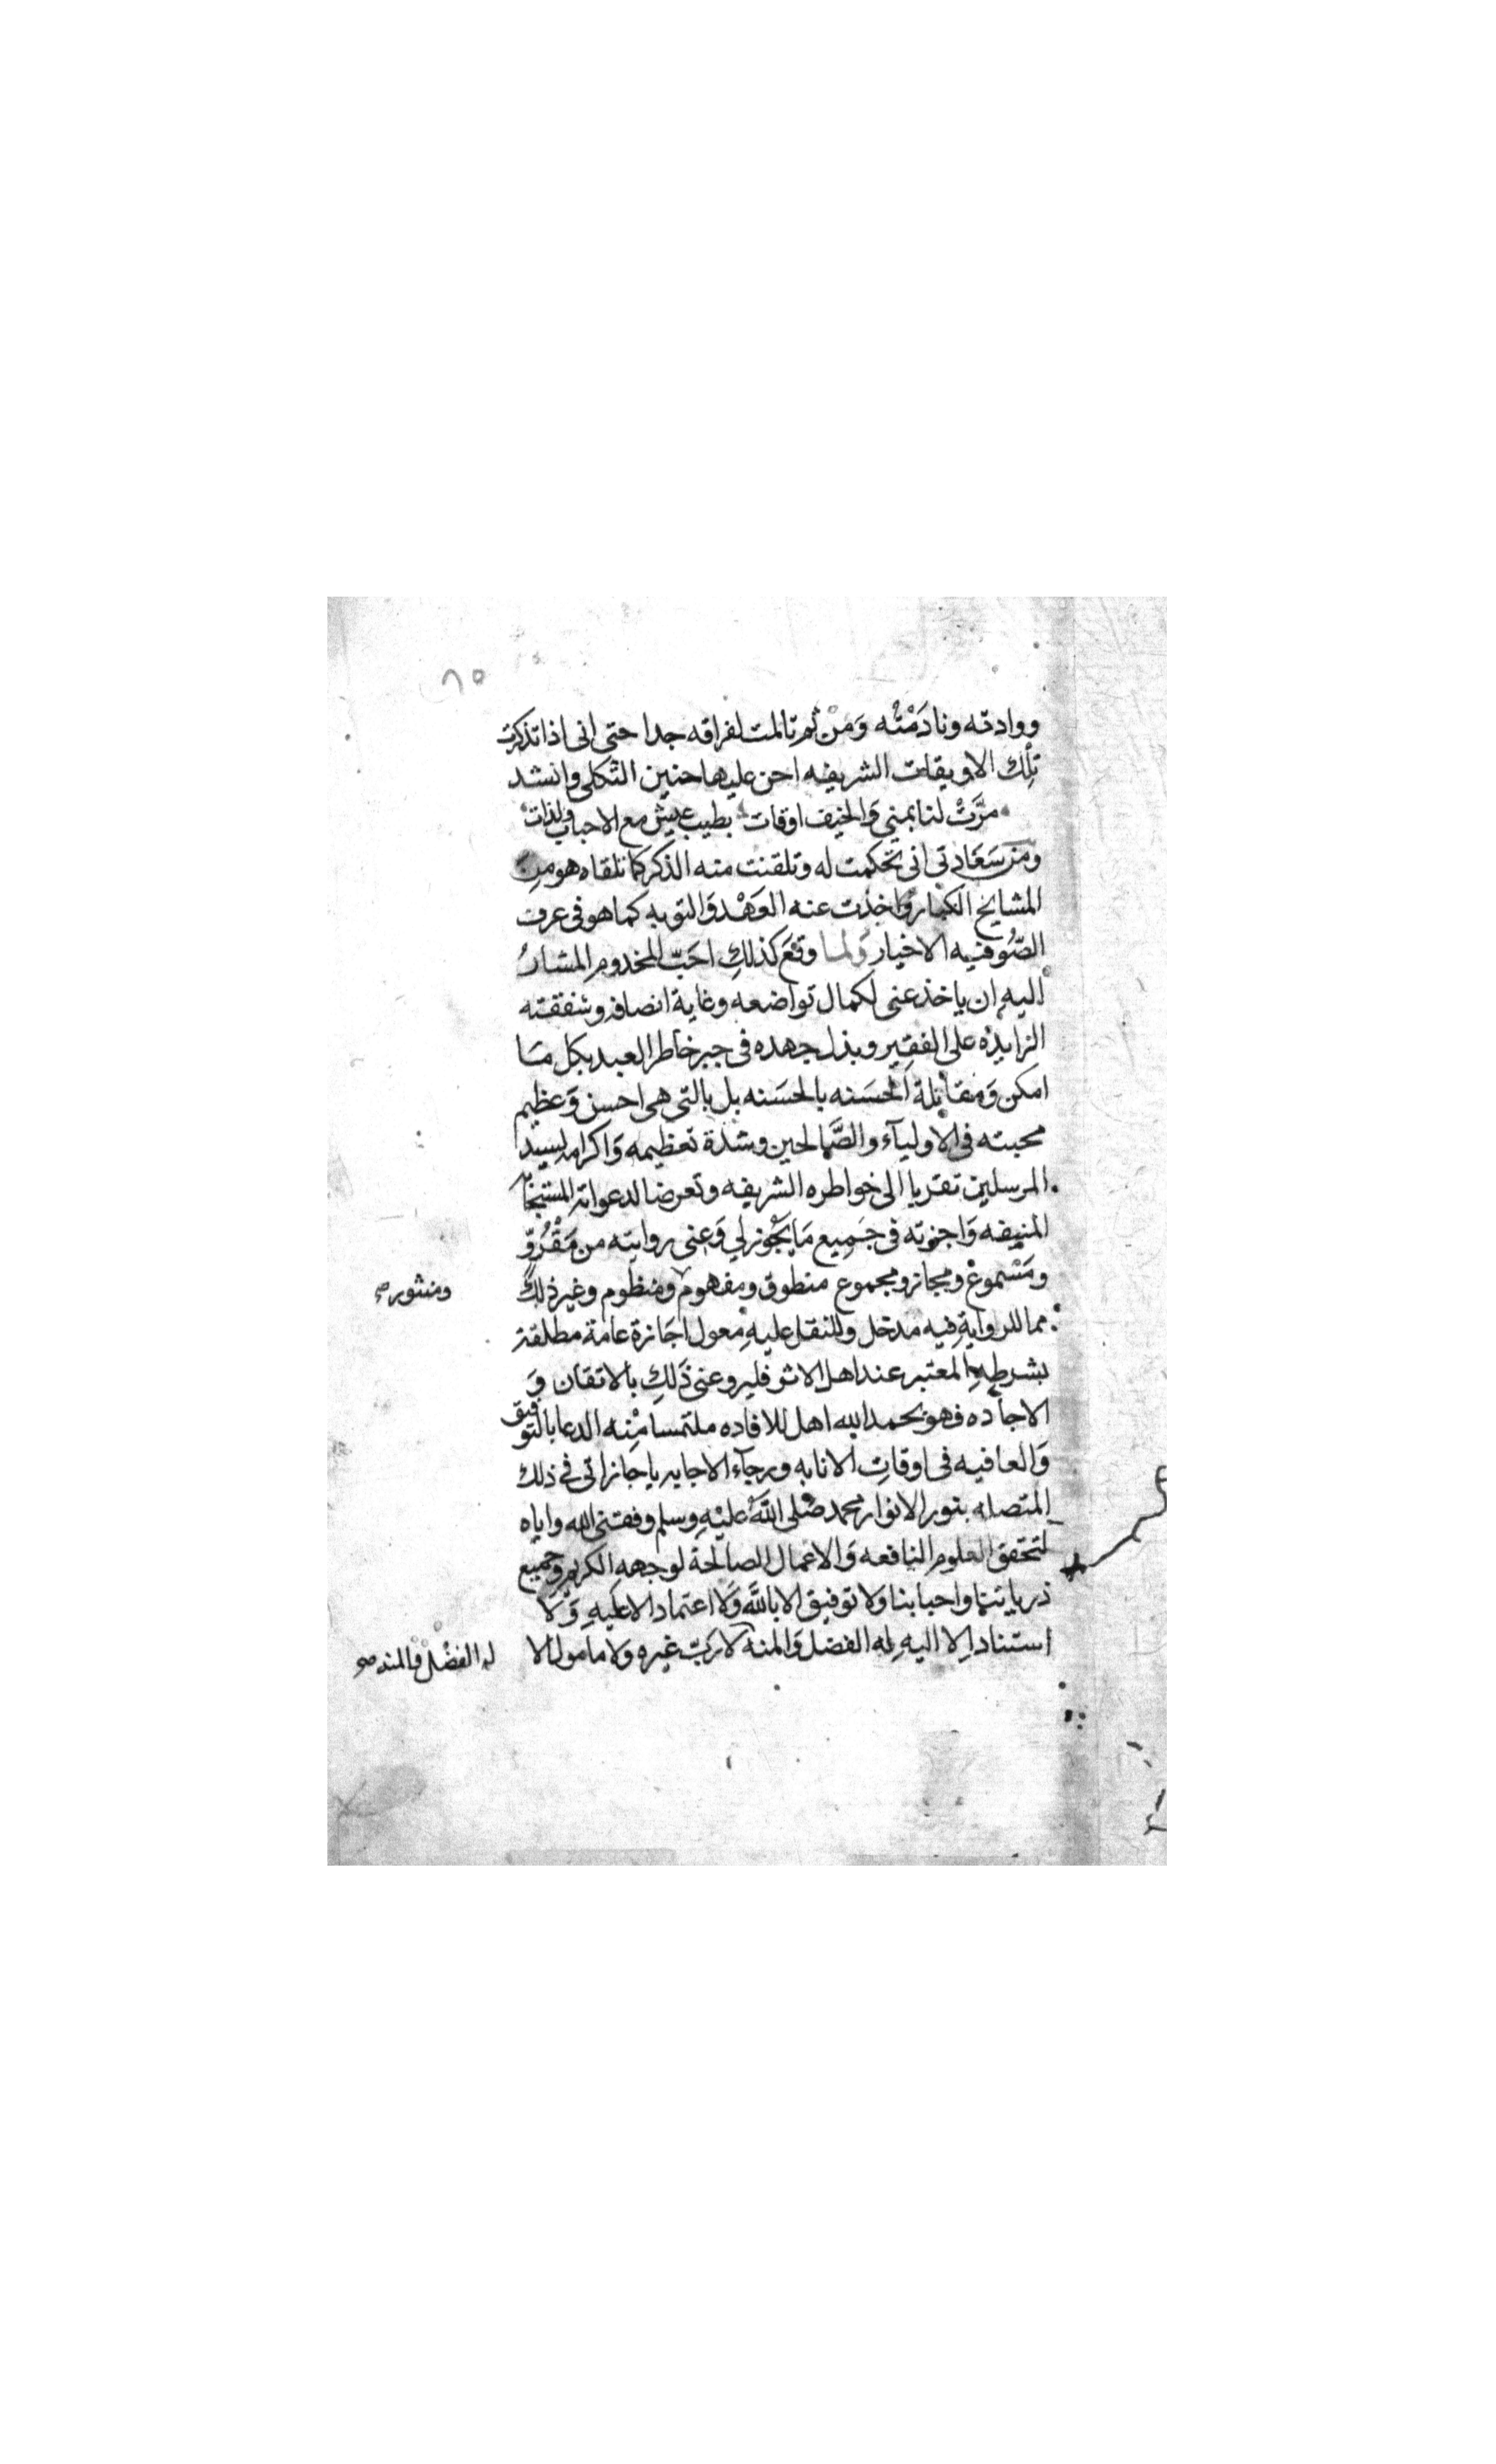 ٨٥
ووادته ونادَمْتُه وَمن ثم تالمت لفراقه جدا حتى انى اذا تذكرت
تلك الاويقات الشريفه احن عليها حنين الثكلى وانشد
مرَّتْ لنا بمنى وَالخيف اوقات بطيب عيش مع الاحباب ولذات
ومن سَعَادتى انى تحكمت له وتلقنت منه الذكر كما تلقاه هو من
المشايخ الكبار واخذت عنه العَهْد وَالتوبه كما هو فى عرف
الصُّوفيه الاخيار وَلما وقعَ كذلكِ احَبّ المخدوم المشارُ
اليهِ ان ياخذ عنى لكمال تواضعه وغاية انصافه وشفقته
الزايدْه على الفقير وبذل جهده فى جبر خاطر العبد بكل مَا
امكن وَمقابَلة الحسَنه بالحسَنه بل بالتى هى احسن وَعظيم
محبته فى الاوليآء والصَّالحين وشدة تعظيمه وَاكرامه لسيد
المرسلين تقربا الى خواطره الشريفه وتعرضا لدعواته
المنيفه وَاجزته فى جَميع مَا يَجُوز لي وَعنى روايته من مَقْرُوّ
ومَسْموع ومجاز ومجموع منطوق ومفهوم ومنظوم وغير ذلك
ومنثور صح
مما للروايةِ فيه مدخل وللنقل عليهِ معول اجَازة عامة مطلقة
بشرطهِ المعتبر عند اهل الاثر فليرو عنى ذَلكِ بالاتقان وَ
الاجاده فهو بحمد الله اهل للافاده ملتمسا مِنْه الدعا بالتوفيق
وَالعافيه فى اوقاتِ الانابه ورجآء الاجابه باجازاتى فى ذلك
المتصله بنور الانوار محمد صَلى اللّهُ عليْهِ وسلم وفقنى الله واياه
لتحقق العلوم النافعه وَالاعمال الصالحة لوجهه الكريم وجميع
ذرياتنا واحبابنا ولا توفيق الا باللّهِ وَلا اعتماد الا عليهِ وَلا
استناد الا اليهِ له الفضل وَالمنه لا رَبّ غيره ولا مامول الا
له الفضْل وَالمنه صح